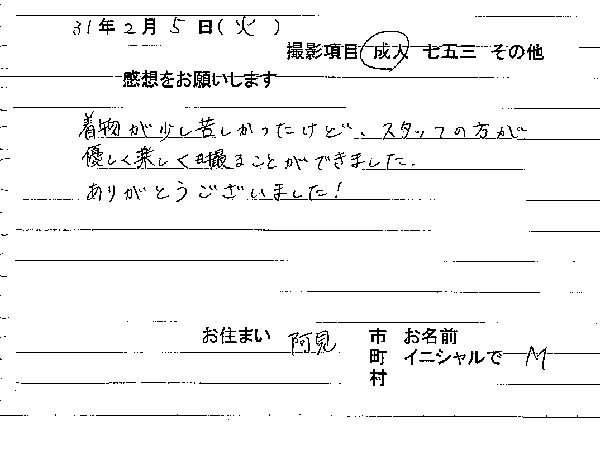 31年2月5日(火)
撮影項目 成人 七五三 その他
感想をお願いします
着物が少し苦しかったけど、スタッフの方が
優しく楽しく撮ることができました.
ありがとうございました!
お住まい 阿見 市 お名前
町 イニシャルで M
村